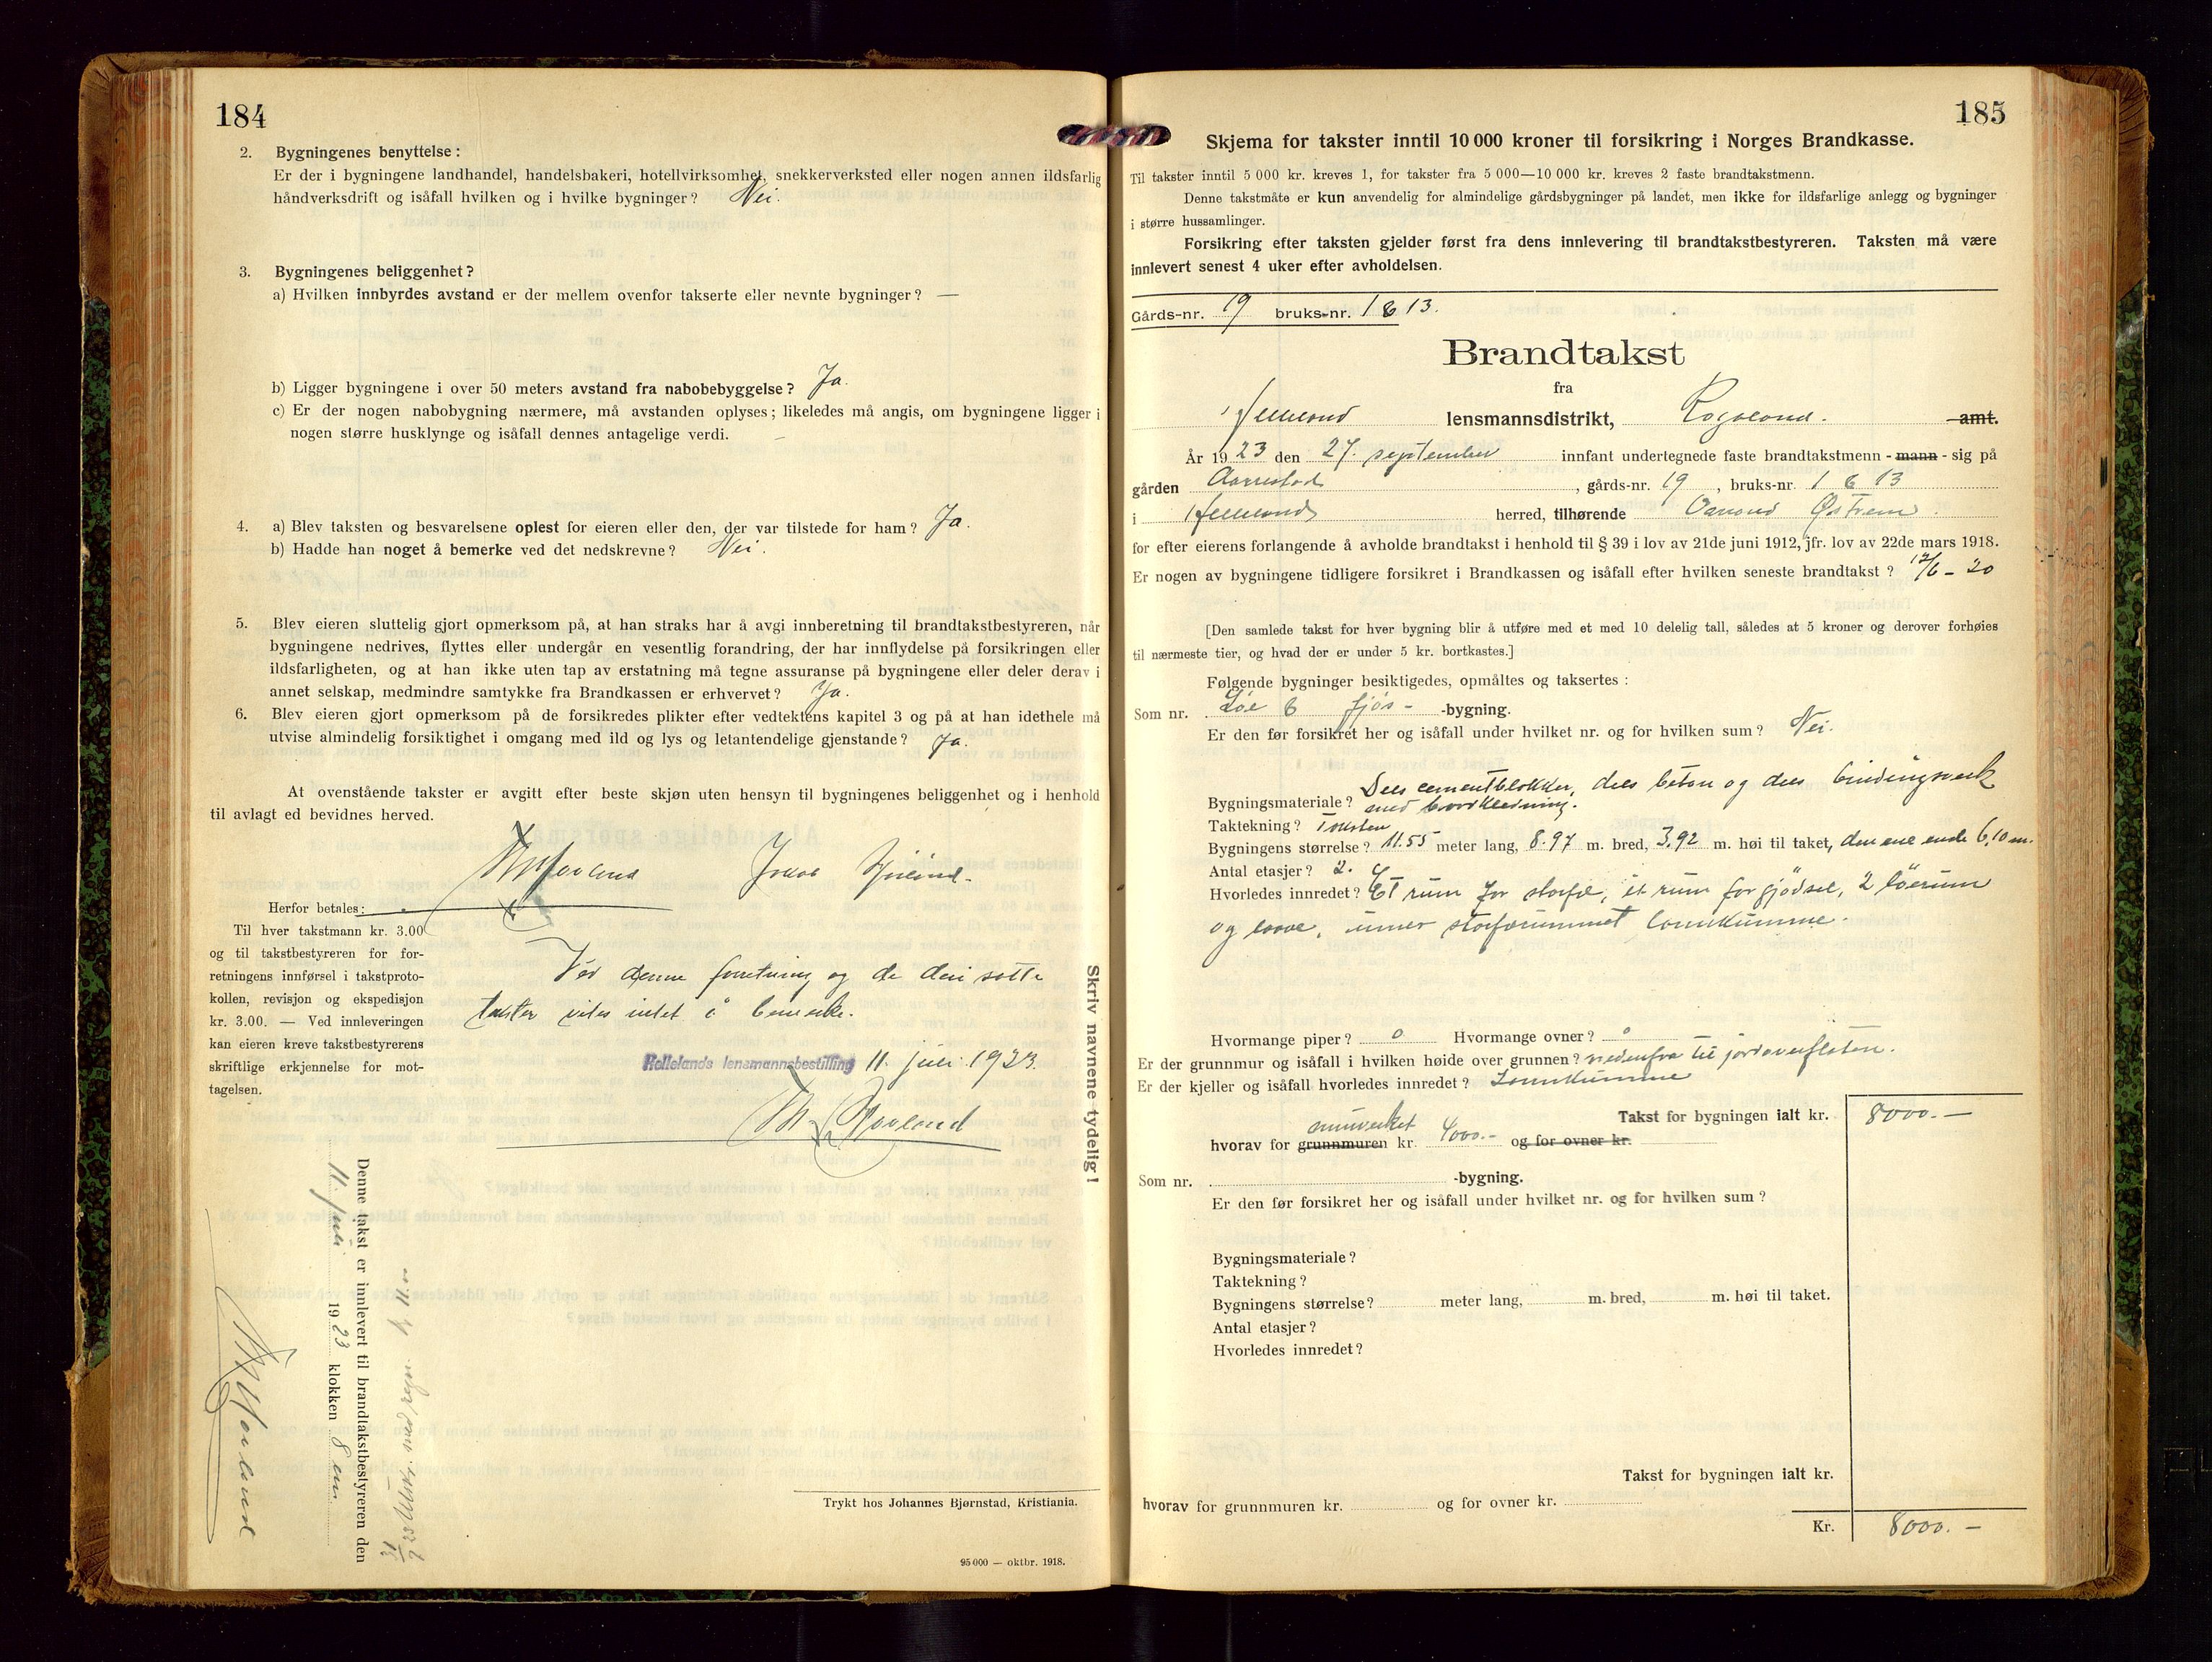 184
2. Bygningenes benyttelse :
Er der i bygningene landhandel, handelsbakeri, hotellvirksomhet, snekkerverksted eller nogen annen ildsfarlig
håndverksdrift og isåfall hvilken og i hvilke bygninger ? Nei.
3. Bygningenes beliggenhet ?
a) Hvilken innbyrdes avstand er der mellem ovenfor takserte eller nevnte bygninger ? —
b) Ligger bygningene i over 50 meters avstand fra nabobebyggelse ? Ja.
c) Er der nogen nabobygning nærmere, må avstanden oplyses ; likeledes må angis, om bygningene ligger i
nogen større husklynge og isåfall dennes antagelige verdi. —
4. a) Blev taksten og besvarelsene oplest for eieren eller den, der var tilstede for ham ? Ja.
b) Hadde han noget å bemerke ved det nedskrevne ? Nei.
5. Blev eieren sluttelig gjort opmerksom på, at han straks har å avgi innberetning til brandtakstbestyreren, når
bygningene nedrives, flyttes eller undergår en vesentlig forandring, der har innflydelse på forsikringen eller
ildsfarligheten, og at han ikke uten tap av erstatning må tegne assuranse på bygningene eller deler derav i
annet selskap, medmindre samtykke fra Brandkassen er erhvervet ? Ja.
6. Blev eieren gjort opmerksom på de forsikredes plikter efter vedtektens kapitel 3 og på at han idethele må
utvise almindelig forsiktighet i omgang med ild og lys og letantendelige gjenstande ? Ja.
At ovenstående takster er avgitt efter beste skjøn uten hensyn til bygningenes beliggenhet og i henhold
til avlagt ed bevidnes herved.
Herfor betales :
Til hver takstmann kr. 3.00
og til takstbestyreren for for-
retningens innførsel i takstproto-
kollen, revisjon og ekspedisjon
kr. 3.00. — Ved innleveringen
kan eieren kreve takstbestyrerens
skriftlige erkjennelse for mot-
tagelsen.
Ved denne forretning og de deri satte
takster vites intet å bemerke.
Hellelands lensmannsbestilling 11. juli 1923.
Skriv navnene tydelig !
Denne takst er innlevert til brandtakstbestyreren den
11. juli 1923 klokken 8 em
Trykt hos Johannes Bjørnstad, Kristiania.
95 000 — oktbr. 1918.
185
Skjema for takster inntil 10 000 kroner til forsikring i Norges Brandkasse.
Til takster inntil 5 000 kr. kreves 1, for takster fra 5 000—10 000 kr. kreves 2 faste brandtakstmenn.
Denne takstmåte er kun anvendelig for almindelige gårdsbygninger på landet, men ikke for ildsfarlige anlegg og bygninger
i større hussamlinger.
Forsikring efter taksten gjelder først fra dens innlevering til brandtakstbestyreren. Taksten må være
innlevert senest 4 uker efter avholdelsen.
Gårds-nr. 19 bruks-nr. 1 & 13.
Brandtakst
fra
Helleland lensmannsdistrikt, Rogaland. amt.
År 1923 den 27. september innfant undertegnede faste brandtakstmenn - mann - sig på
gården Aarrestad, gårds-nr. 19, bruks-nr. 1 & 13
i Helleland herred, tilhørende Østrem.
for efter eierens forlangende å avholde brandtakst i henhold til § 39 i lov av 21de juni 1912, jfr. lov av 22de mars 1918.
Er nogen av bygningene tidligere forsikret i Brandkassen og isåfall efter hvilken seneste brandtakst ? 17/6 - 20
[Den samlede takst for hver bygning blir å utføre med et med 10 delelig tall, således at 5 kroner og derover forhøies
til nærmeste tier, og hvad der er under 5 kr. bortkastes.]
Følgende bygninger besiktigedes, opmåltes og taksertes :
Som nr. Löe & fjøs- -bygning.
Er den før forsikret her og isåfall under hvilket nr. og for hvilken sum ? Nei.
Bygningsmateriale ? Dels cementblokker, dels beton og dels bindingsverk
med bordklædning.
Taktekning ? Taksten
Bygningens størrelse ? 11.55 meter lang, 8.97 m. bred, 3.92 m. høi til taket, den ene ende 6,10 m.
Antal etasjer ? 2.
Hvorledes innredet ? Et rum for storfæ, et rum for gjödsel, 2 löerum
og laave, under storfærummet lannkumme.
Hvormange piper ? 0 Hvormange ovner ? 0
Er der grunnmur og isåfall i hvilken høide over grunnen ? nedenfra til jordoverflaten.
Er der kjeller og isåfall hvorledes innredet ? Lannkumme
Takst for bygningen ialt kr. 8000.—
murverket
hvorav for grunnmuren kr. 4000.- og for ovner kr.
Som nr. -bygning.
Er den før forsikret her og isåfall under hvilket nr. og for hvilken sum ?
Bygningsmateriale ?
Taktekning ?
Bygningens størrelse ? meter lang, m. bred, m. høi til taket.
Antal etasjer ?
Hvorledes innredet ?
Takst for bygningen ialt kr.
hvorav for grunnmuren kr. og for ovner kr.
Kr. 8000.—